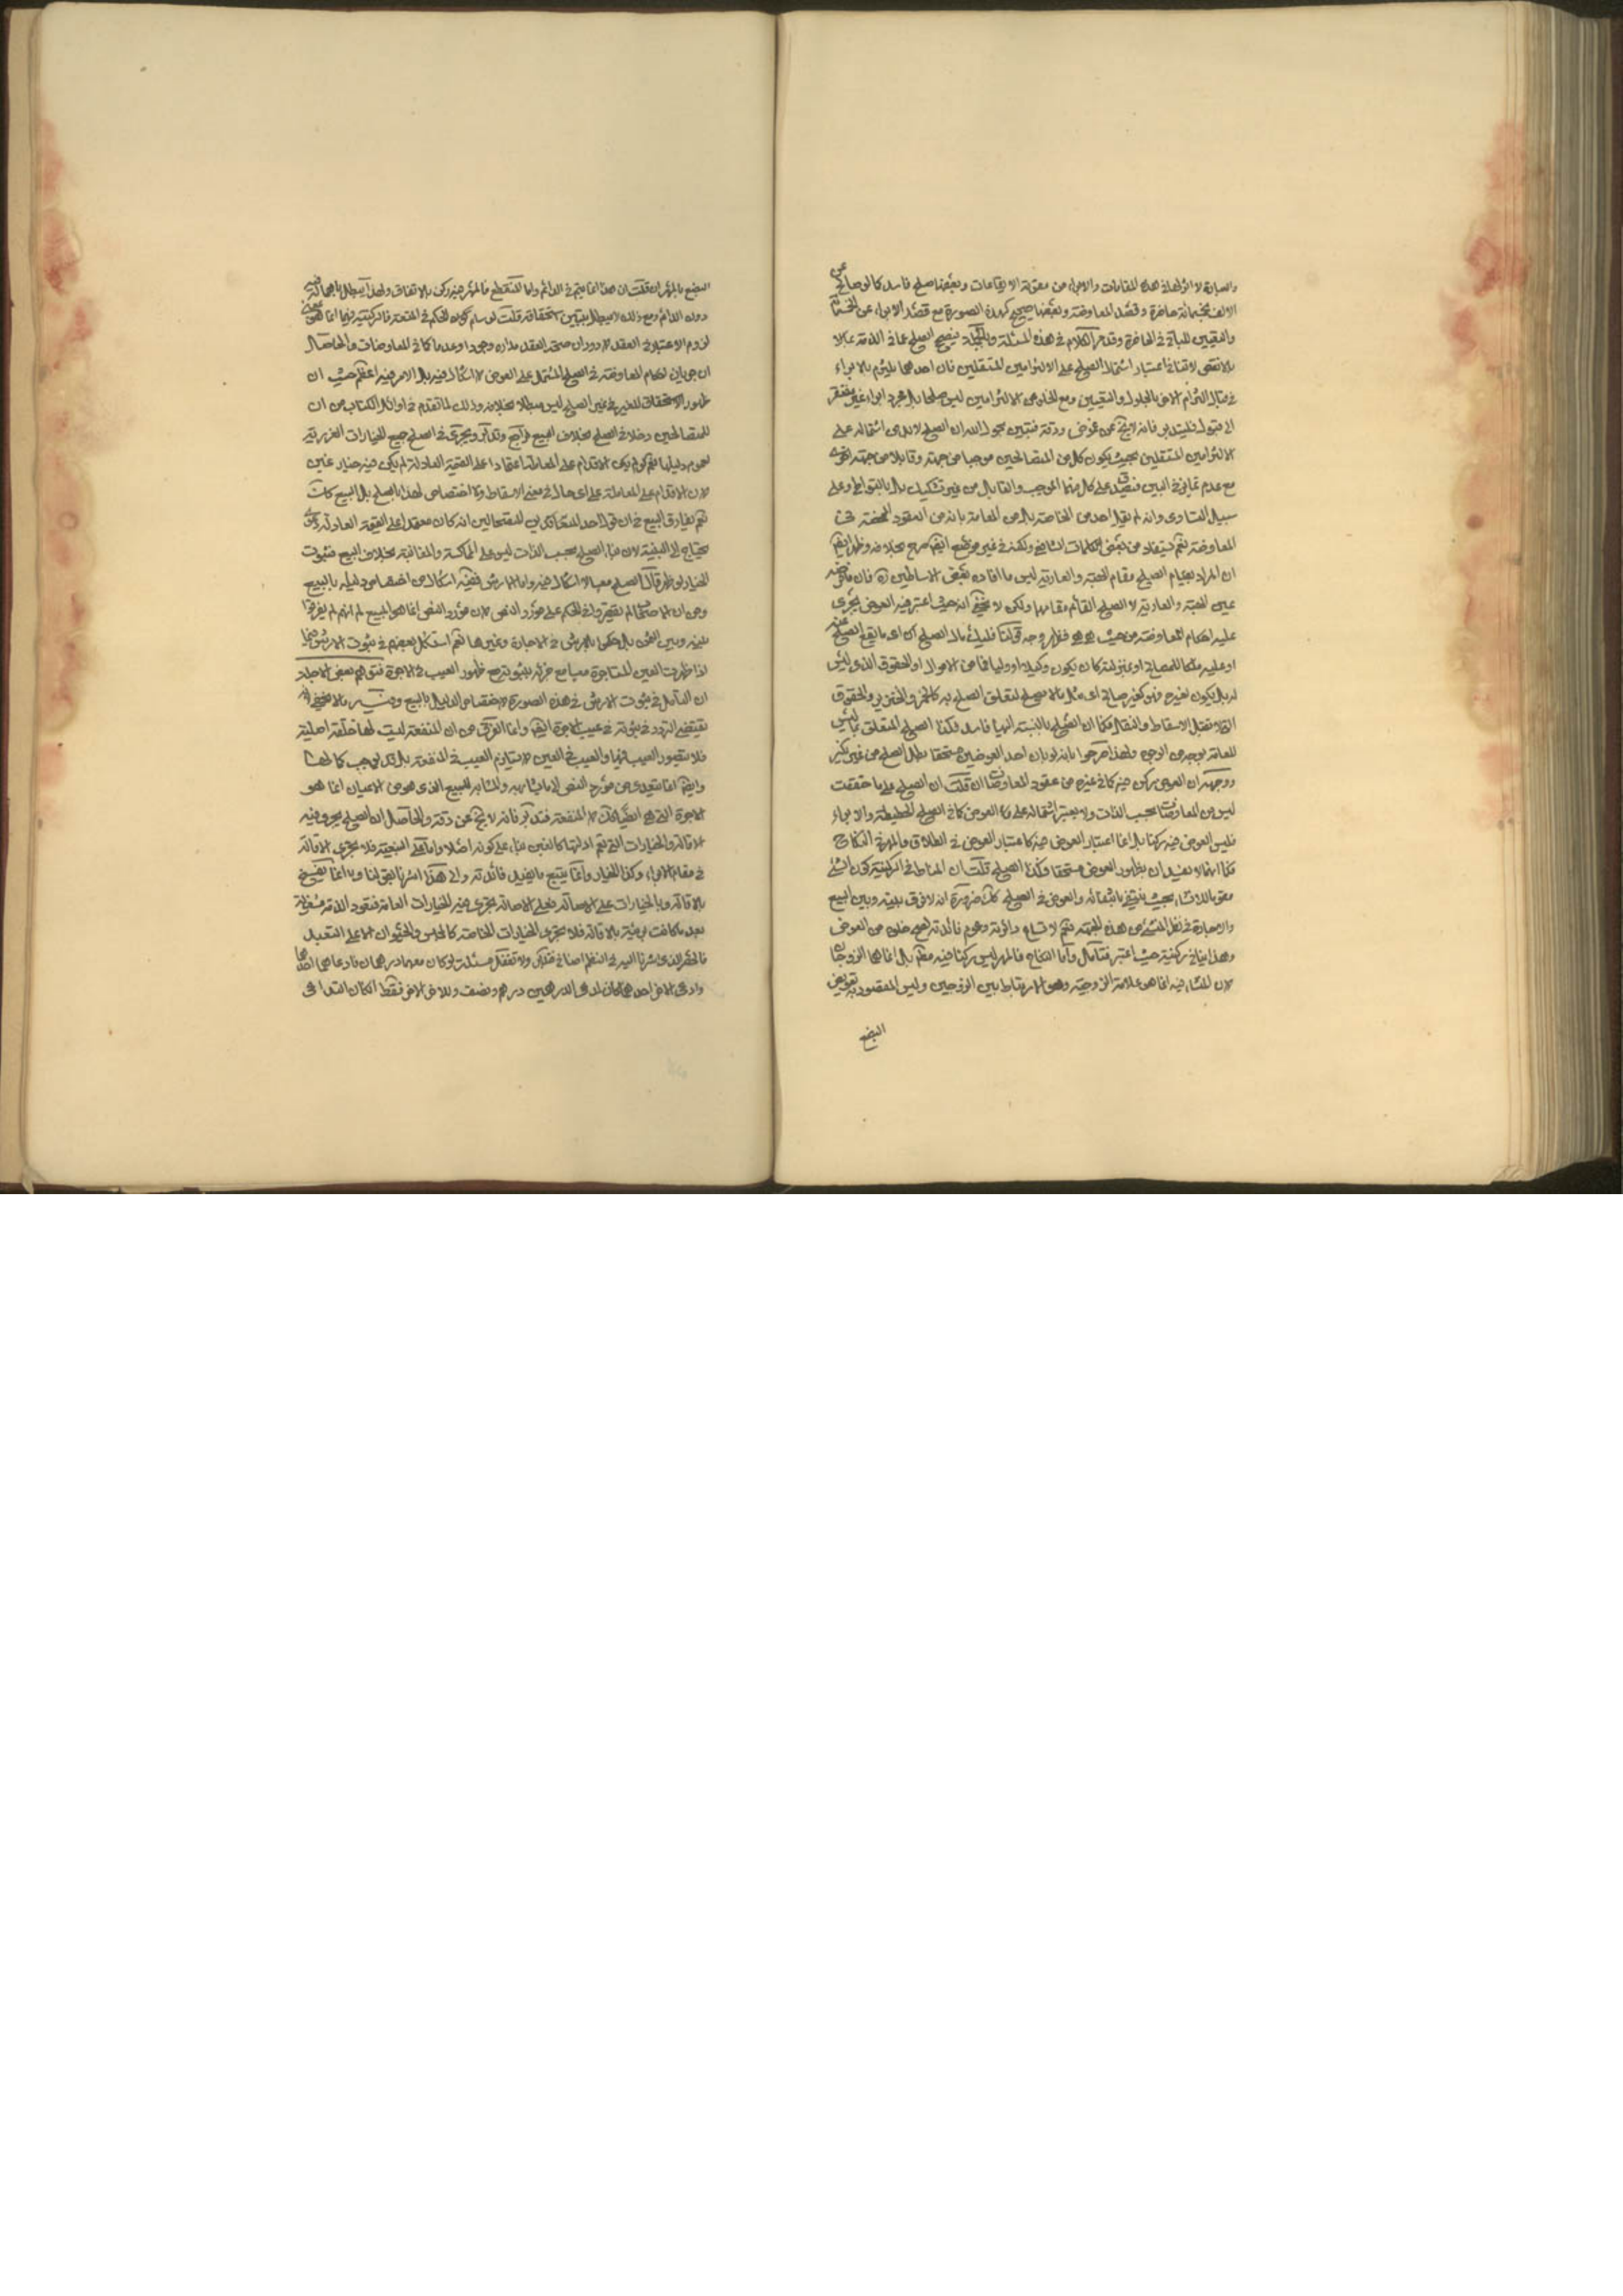 والعبارة لا اثر لها في هذه المقامات والابراء من مقولة الايقاعات وبعضها صلح فاسد كالوصالح عن
الالف بخمسمائة حاضرة وقصد المعاوضة وبعضها صحيح كهذه الصورة مع قصد الابراء عن الخمسمائة
والتعيين للباقي في الحاضرة وقد مر الكلام في هذه المسئلة وبالجملة فيصح الصلح عما في الذمة حالا
بالانقص لا قتنا اعتبار اشتمال الصلح على الالتزامين المستقلين فان احدهما يلتزم بالابراء
في مقابل التزام الاخر بالحلول والتعيين ومع الخلو من الالتزامين ليس صلحا بل مجرد ابراء غير مفتقر
الى قبول فليتدبر فانه لا يخ عن غموض ودقة فتبين بحول الله ان الصلح لا بد من اشتماله على
الالتزامين المستقلين بحيث يكون كل من المتصالحين موجبا من جهة وقابلا من جهة اخرى
مع عدم تمايز في البين فيصدق على كل منهما الموجب والقابل من غير تشكيك بل بالتواطؤ وعلى
سبيل التساوى وانه لم يقل احد من الخاصة بل من العامة بانه من العقود المحضة في
المعاوضة نعم يستفاد من بعض كلمات الشافعي ولكنه في غير موضع ايضا صرح بخلافه وظهر ايضا
ان المراد بقيام الصلح مقام الهبة والعارية ليس ما افاده بعض الاساطين ره فان ما فرضه
عين الهبة والعارية لا الصلح القائم مقامهما ولكن لا يخفى انه حيث اعتبر فيه العوض يجرى
عليه احكام المعاوضة من حيث هو هو فظهر وجه قولنا فليك بالا الصلح اى ما يقع الصلح عنه
او عليه ملكا للمصالح او بمنزلته كان يكون وكيلا او وليا فما من الاموال او الحقوق الذى ليس
له بل يكون لغيره فهو كغير صالح اى مثل ما لا يصلح لتعلق الصلح به كالخمر والخنزير والحقوق
التي لا تقبل الاسقاط والنقل فكما ان الصلح بالنسبة اليها فاسد فكذا الصلح المتعلق بما ليس
للعاقد بوجه من الوجوه ولهذا صرحوا بانه لو بان احد العوضين مستحقا بطل الصلح من غير نكير
ووجهه ان العوض ركن فيه كما في غيره من عقود المعاوضات ان قلت ان الصلح على ما حققت
ليس من المعاوضات بحسب الذات ولا يعتبر اشتماله على العوض كما في الصلح الحطيطة والابراء
فليس العوض فيه ركنا بل انما اعتبار العوض فيه كاعتبار العوض في الطلاق والمهر في النكاح
فكما انهما لا يفسدان بظهور العوض مستحقا فكذا الصلح قلت ان المناط في الركنية كون الشئ
مقوما للانشاء بحيث ينتفي بانتفائه والعوض في الصلح كك ضرورة انه لا فرق بينه وبين البيع
والاجارة في نقل الشئ من هذه الجهة نعم لاتساع دائرته وعموم فائدته يصح خلوه من العوض
وهذا لا ينافي ركنيته حيث اعتبر فتامل واما النكاح فالمهر ليس ركنا فيه مطلقا بل انما هما الزوجان
لان المنشاء فيه انما هو علامة الزوجية وهو الارتباط بين الزوجين وليس المقصود به تعويض
البضع
البضع بالمهر ان قلت ان هذا انما يتم في الدائم واما المنقطع فالمهر فيه ركن بالاتفاق ولهذا يبطل باهماله فيه
دون الدائم ومع ذلك لا يبطل بتبين استحقاقه قلت لو سلم كون الحكم في المتعة فالركنية فيها انما هو بمعنى
لزوم الاعتبار في العقد لا دوران صحة العقد مداره وجودا وعدما كما في المعاوضات والحاصل
ان جريان احكام المعاوضة في الصلح المشتمل على العوض لا اشكال فيه بل الامر فيه اعظم حيث ان
ظهور الاستحقاق للغير في غير الصلح ليس مبطلا بخلافه وذلك لما تقدم في اوائل الكتاب من ان
للمتصالحين دخلا في الصلح بخلاف البيع فراجع وتدبر ويجرى في الصلح جميع الخيارات الغررية
لعموم دليلها نعم لو لم يكن الاقدام على المعاملة اعتمادا على القيمة العادلة لم يكن فيه خيار غبن
لان الاقدام على المعاملة على اى حال في معنى الاسقاط ولا اختصاص لهذا بالصلح بل البيع كك
نعم يفارق البيع في ان قول احد المتحاكمين المتصالحين انه كان معتمدا على القيمة العادلة
يحتاج الى البينة لان بناء الصلح بحسب الذات ليس على المماكسة والمغابنة بخلاف البيع فثبوت
الخيار لو ظهر مال الصلح معيبا لا اشكال فيه واما الارش ففيه اشكال من اختصاص دليله بالبيع
ومن ان الاصحاب لم يقصروا في الحكم على مورد النص لان مورد النص انما هو المبيع ثم انهم لم يفرقوا
بينه وبين الثمن بل حكموا بالارش في الاجارة وغيرها نعم استشكل بعضهم في ثبوت الارش فيما
اذا ظهرت العين المستاجرة معيبا مع جزمه بثبوته مع ظهور العيب في الاجرة فتوهم بعض الاجلة
ان التامل في ثبوت الارش في هذه الصورة لاختصاص الدليل بالبيع وفيه ما لا يخفى فانه
يقتضى التردد في ثبوته في عيب الاجرة ايضا وانما الفرق من ان المنفعة ليست لها خلقة اصلية
فلا يتصور العيب فيها والعيب في العين لا يستلزم العيب في المنفعة بل قد يوجب كمالها
وايضا انما يتعدى من مورد النص الى ما يشابهه والمشابه للمبيع الذى هو من الاعيان انما هو
الاجرة التي هي ايضا كك لا المنفعة فتدبر فانه لا يخ عن دقة والحاصل ان الصلح يجرى فيه
الاقالة والخيارات التي تعم ادلتها كالغبن بناء على كونه اصلا واما على التبعية فلا يجرى الاقالة
في مقام الابراء وكذا الخيار وانما يتبع ما يفيد فائدته والى هذا اشرنا بقولنا وانما يفسخ
بالاقالة وبالخيارات على الاصالة فعلى الاصالة يجرى فيه الخيارات العامة فتعود الذمة مشغولة
بعد ما كانت بريئة بالاقالة فلا يجرى الخيارات الخاصة كالمجلس والحيوان الا على التعبد
فالحصر الذى اشرنا اليه في النظم اضافي فتدبر ولا تغفل مسئلة لو كان معهما درهمان فادعاهما احدهما
وادعى الاخر احدهما كان لمدعى الدرهمين درهم ونصف وللاخر الاخر نصف فقط لمكان التداعى